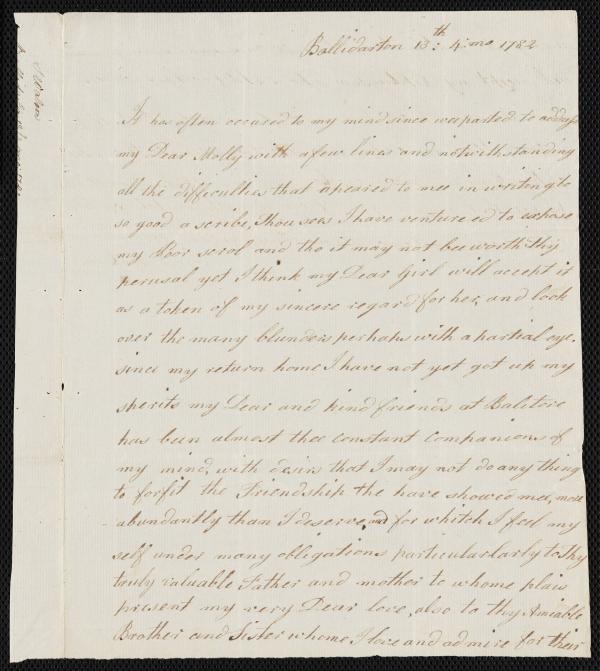 Ballidarton 13th: 4:mo 1782
It has often occured to my mind since wee parted to address
my Dear Molly with a few lines and notwithstanding
all the difficulties that apeared to mee in writeng to
so good a scribe, thou sees I have venture ed to expose
my Poor scrol and tho it may not bee worth thy
perusal yet I think my Dear Girl will accept it
as a token of my sincere regard for her, and look
over the many blunders perhaps with a partial eye.
since my return home I have not yet got up my
sperits my Dear and kind friends at Balitore
has been almost the constant companions of
my mind, with desirs that I may not do any thing
to forfit the Friendship the have showed mee, more
abundantly than I deserve, and for whitch I feel my
self under many obligations particularlarly to thy
truly valuable Father and mother to whome plais
present my very Dear love, also to thy Amiable
Brother and Sister whome I love and admire for their